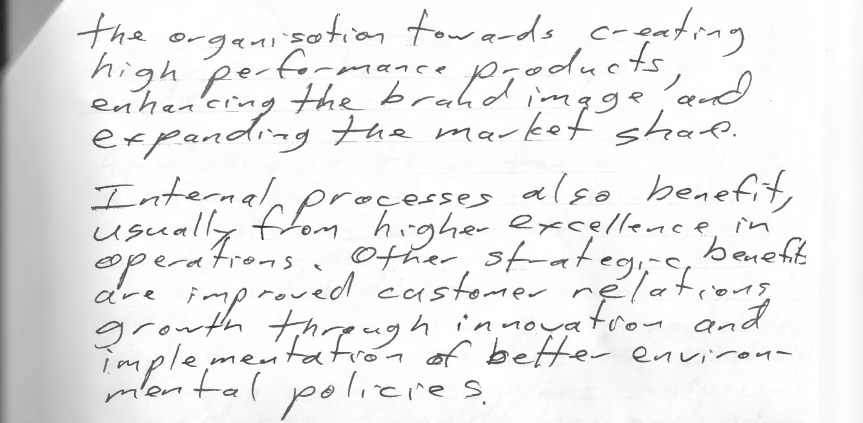 the organisation towards creating
high performance products,
enhancing the brand image and
expanding the market share.
Internal processes also benefit,
usually from higher excellence in
operations. Other strategic benefits
are improved customer relations,
growth through innovation and
implementation of better environ-
mental policies.